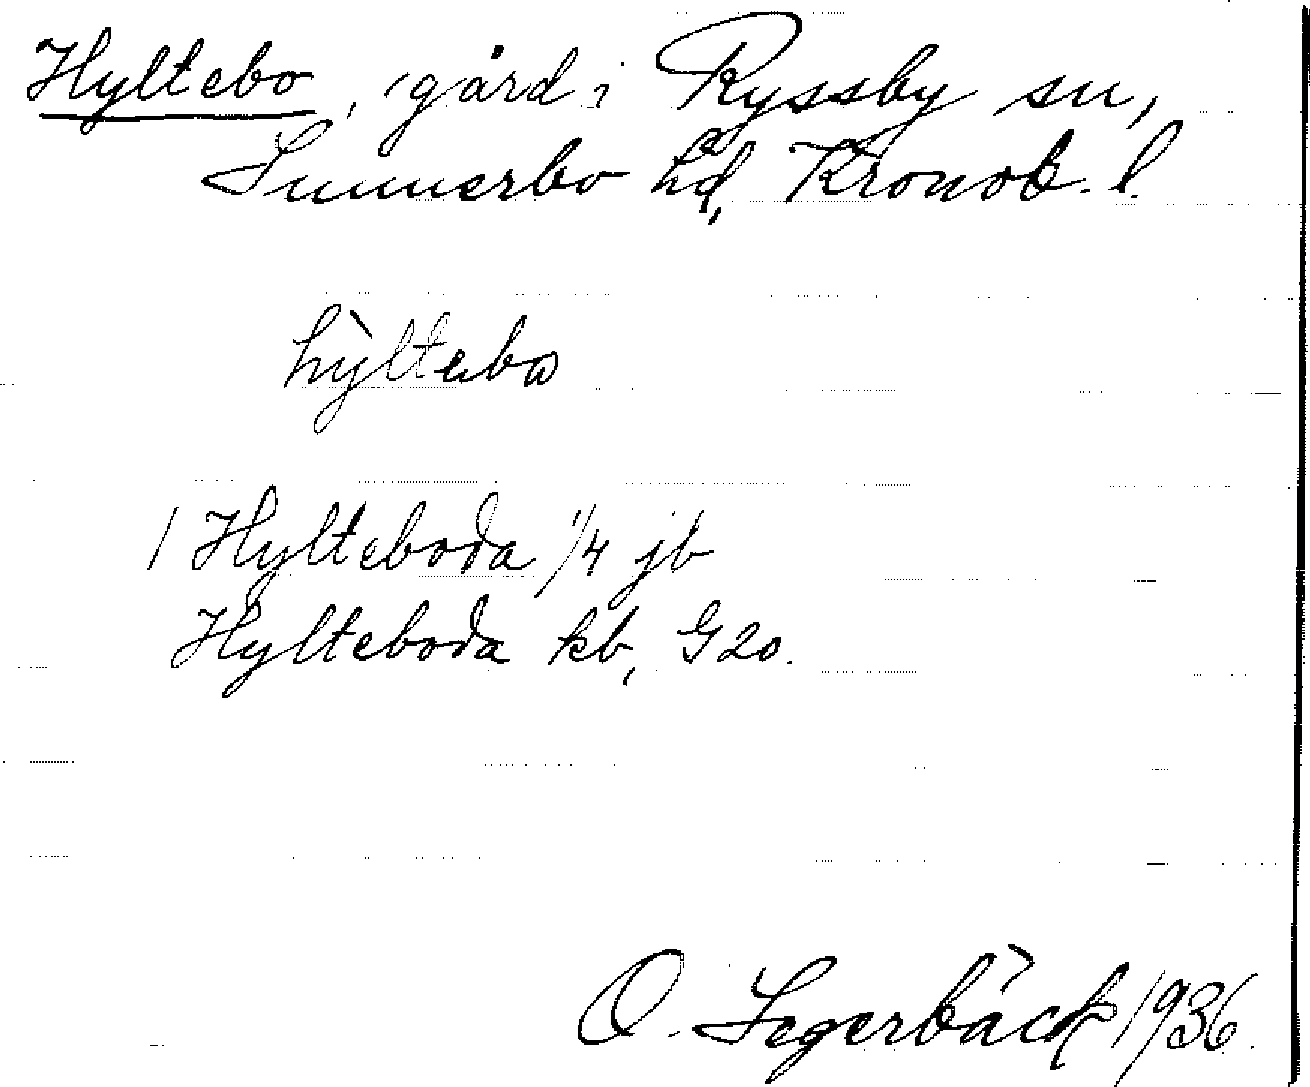 Hyltebo, gård i Ryssby sn,
Sunnerbo hd, Kronob. l.
hỳltebo
1 Hylteboda 1/4 jb
Hylteboda kb, G20.
O. Segerbäck 1936.